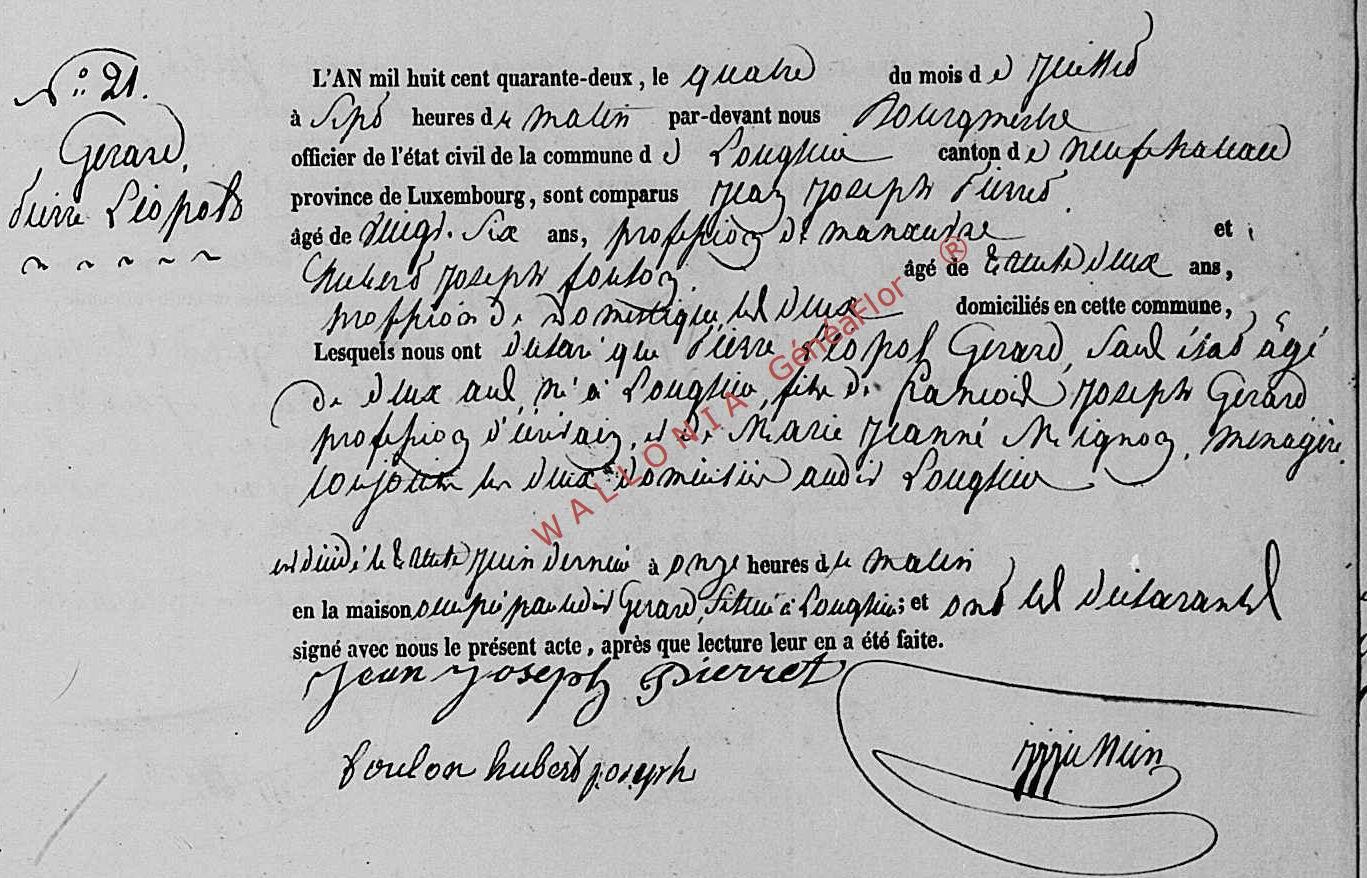 N.° 21.
Gerard,
Pierre Léopold
L'AN mil huit cent quarante-deux, le quatre du mois de Juillet
à sept heures du matin par-devant nous Bourgmestre
officier de l'état civil de la commune de Longlier canton de Neufchateau
province de Luxembourg, sont comparus Jean Joseph Pierret
âgé de vingt-six ans, profession de manœuvre et
hubert Joseph foulon, âgé de trente deux ans,
profession de Domestique, les deux domiciliés en cette commune,
Lesquels nous ont déclaré que Pierre Léopold Gerard, sans état âgé
de deux ans, né à Longlier, fils de francois Joseph Gerard
profession d'écrivain, et de Marie Jeanne Mignon, menagère
conjoints les deux domiciliés audit Longlier
est décédé le trente Juin dernier à onze heures du matin
en la maison occupée par ledit Gerard, située à Longlier; et ont les déclarants
signé avec nous le présent acte, après que lecture leur en a été faite.
Jean Joseph Pierret
foulon hubert joseph
WALLONIA GénéaFlor ®